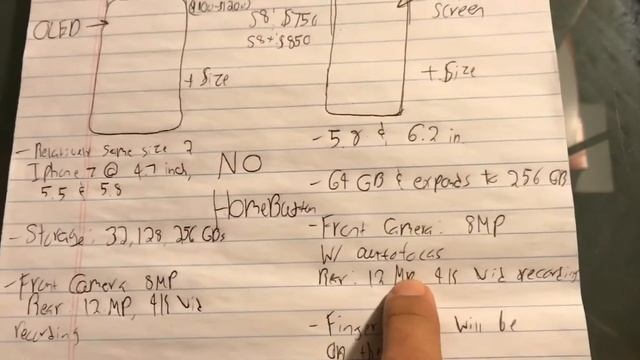 OLED
S8: $750
S8+: $850
Screen
+ Size
+ Size
- Relatively same size 7
Iphone 7 @ 4.7 inch,
5.5 & 5.8
NO
HomeButton
- Storage: 32, 128, 256 GBs
- Front Camera 8MP
Rear 12 MP, 4K Vid
recording
- 5.8 & 6.2 in
- 64 GB & expands to 256 GB
- Front Camera: 8MP
W/ autofocas
Rear: 12 MP, 4K Vid recording
- Finger will be
on the